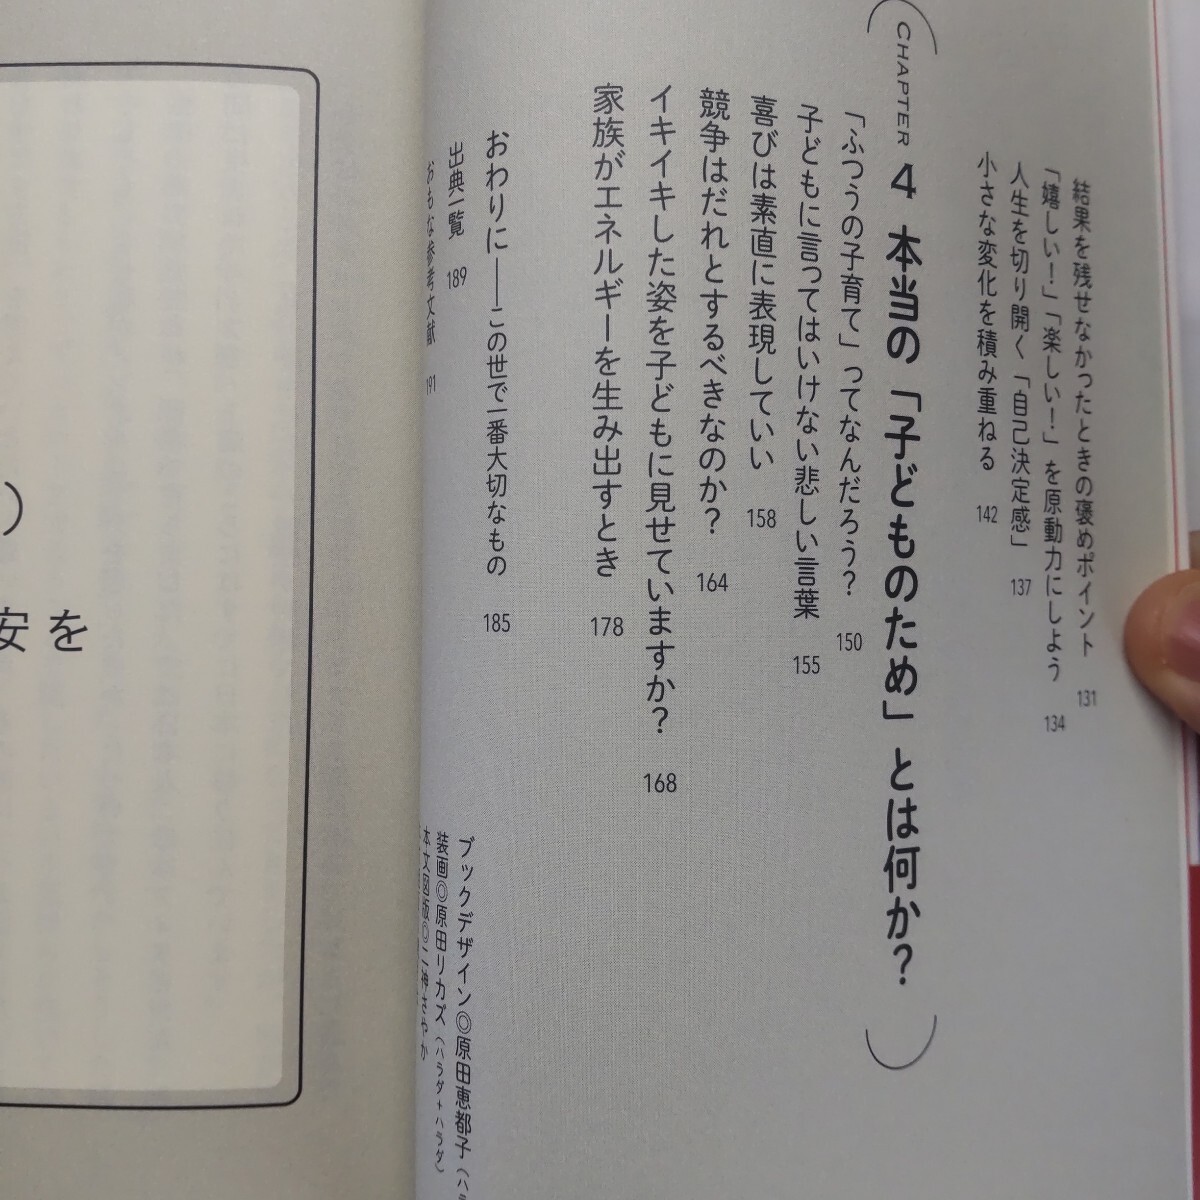 結果を残せなかったときの褒めポイント 131
「嬉しい！」「楽しい！」を原動力にしよう 134
人生を切り開く「自己決定感」 137
小さな変化を積み重ねる 142
CHAPTER 4 本当の「子どものため」とは何か？
「ふつうの子育て」ってなんだろう？ 150
子どもに言ってはいけない悲しい言葉 155
喜びは素直に表現していい 158
競争はだれとするべきなのか？ 164
イキイキした姿を子どもに見せていますか？ 168
家族がエネルギーを生み出すとき 178
おわりに――この世で一番大切なもの 185
出典一覧 189
おもな参考文献 191
ブックデザイン◎原田恵都子（ハラ
装画◎原田リカズ（ハラダ＋ハラダ）
本文図版◎二神さやか
）
安を